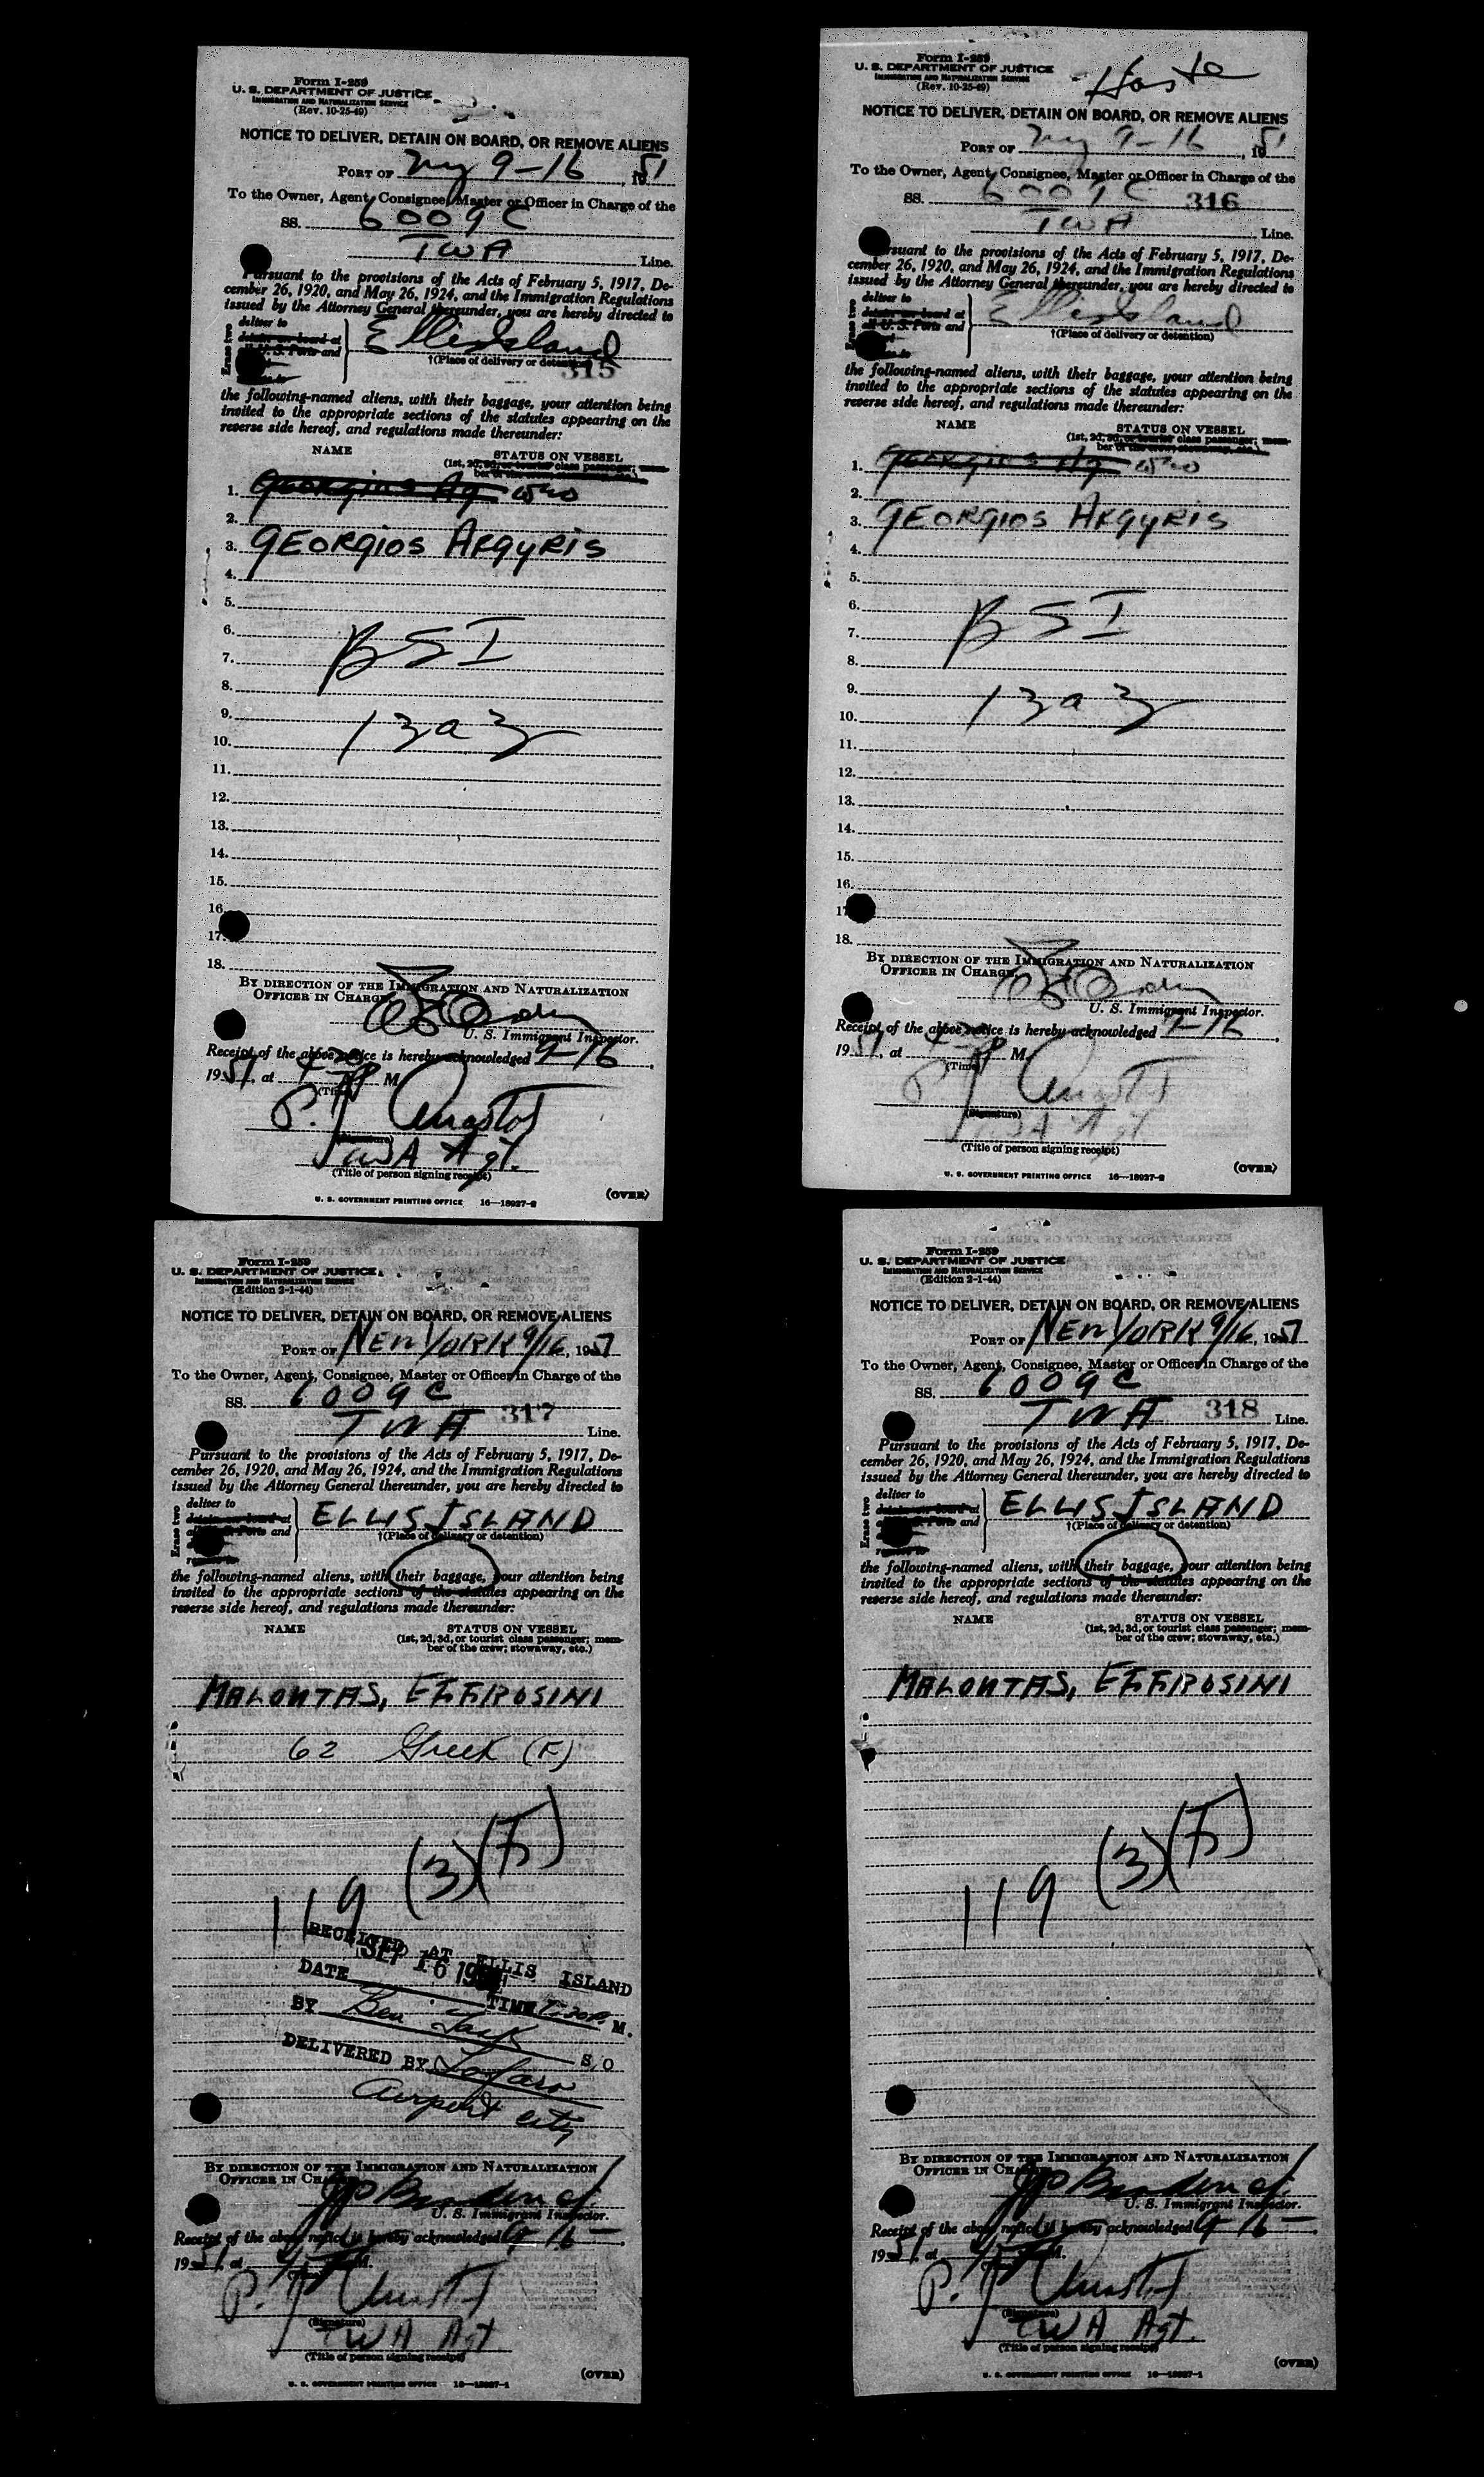 Form I-259
U. S. DEPARTMENT OF JUSTICE
IMMIGRATION AND NATURALIZATION SERVICE
(Rev. 10-25-49)
NOTICE TO DELIVER, DETAIN ON BOARD, OR REMOVE ALIENS
PORT OF NY 9-16, 1951
To the Owner, Agent, Consignee, Master or Officer in Charge of the
SS. 6009C
TWA Line.
Pursuant to the provisions of the Acts of February 5, 1917, De-
cember 26, 1920, and May 26, 1924, and the Immigration Regulations
issued by the Attorney General thereunder, you are hereby directed to
Erase two
deliver to
detain on board at
all U. S. Ports and
Ellis Island
†(Place of delivery or detention)
315
the following-named aliens, with their baggage, your attention being
invited to the appropriate sections of the statutes appearing on the
reverse side hereof, and regulations made thereunder:
NAME STATUS ON VESSEL
(1st, 2d, 3d, or tourist class passenger; mem-
ber of the crew; stowaway, etc.)
1. Georgios Ag
2.
3. GEORGIOS ARGYRIS
4.
5.
6. BSI
7.
8.
9. 13a3
10.
11.
12.
13.
14.
15.
16.
17.
18.
BY DIRECTION OF THE IMMIGRATION AND NATURALIZATION
OFFICER IN CHARGE,
U. S. Immigrant Inspector.
Receipt of the above notice is hereby acknowledged 9-16,
1951, at M.
(Time)
P.
(Signature)
TWA Agt.
(Title of person signing receipt)
(OVER)
U. S. GOVERNMENT PRINTING OFFICE 16—18927-2
Form I-259
U. S. DEPARTMENT OF JUSTICE
IMMIGRATION AND NATURALIZATION SERVICE
(Rev. 10-25-49)
NOTICE TO DELIVER, DETAIN ON BOARD, OR REMOVE ALIENS
PORT OF NY 9-16, 1951
To the Owner, Agent, Consignee, Master or Officer in Charge of the
SS. 6009C 316
TWA Line.
Pursuant to the provisions of the Acts of February 5, 1917, De-
cember 26, 1920, and May 26, 1924, and the Immigration Regulations
issued by the Attorney General thereunder, you are hereby directed to
Erase two
deliver to
detain on board at
all U. S. Ports and
Ellis Island
†(Place of delivery or detention)
the following-named aliens, with their baggage, your attention being
invited to the appropriate sections of the statutes appearing on the
reverse side hereof, and regulations made thereunder:
NAME STATUS ON VESSEL
(1st, 2d, 3d, or tourist class passenger; mem-
ber of the crew; stowaway, etc.)
1. Georgios Ag
2.
3. GEORGIOS ARGYRIS
4.
5.
6. BSI
7.
8.
9. 13a3
10.
11.
12.
13.
14.
15.
16.
17.
18.
BY DIRECTION OF THE IMMIGRATION AND NATURALIZATION
OFFICER IN CHARGE,
U. S. Immigrant Inspector.
Receipt of the above notice is hereby acknowledged 9-16,
1951, at M.
(Time)
P.
(Signature)
TWA Agt.
(Title of person signing receipt)
(OVER)
U. S. GOVERNMENT PRINTING OFFICE 16—18927-2
Form I-259
U. S. DEPARTMENT OF JUSTICE
IMMIGRATION AND NATURALIZATION SERVICE
(Edition 2-1-44)
NOTICE TO DELIVER, DETAIN ON BOARD, OR REMOVE ALIENS
PORT OF NEW YORK 9/16, 1951
To the Owner, Agent, Consignee, Master or Officer in Charge of the
SS. 6009C
TWA 317 Line.
Pursuant to the provisions of the Acts of February 5, 1917, De-
cember 26, 1920, and May 26, 1924, and the Immigration Regulations
issued by the Attorney General thereunder, you are hereby directed to
Erase two
deliver to
detain on board at
all U. S. Ports and
remove to
ELLIS ISLAND
†(Place of delivery or detention)
the following-named aliens, with their baggage, your attention being
invited to the appropriate sections of the statutes appearing on the
reverse side hereof, and regulations made thereunder:
NAME STATUS ON VESSEL
(1st, 2d, 3d, or tourist class passenger; mem-
ber of the crew; stowaway, etc.)
MALOUTAS, EFFROSINI
62 Greek (F)
119 (3) (F)
RECEIVED AT ELLIS ISLAND
DATE SEP 16 1951 TIME M.
BY Ben S/O
DELIVERED BY
Airport City
BY DIRECTION OF THE IMMIGRATION AND NATURALIZATION
OFFICER IN CHARGE,
U. S. Immigrant Inspector.
Receipt of the above notice is hereby acknowledged 9-16,
1951, at M.
P.
(Signature)
TWA Agt
(Title of person signing receipt)
(OVER)
U. S. GOVERNMENT PRINTING OFFICE 16—18927-1
Form I-259
U. S. DEPARTMENT OF JUSTICE
IMMIGRATION AND NATURALIZATION SERVICE
(Edition 2-1-44)
NOTICE TO DELIVER, DETAIN ON BOARD, OR REMOVE ALIENS
PORT OF NEW YORK 9/16, 1951
To the Owner, Agent, Consignee, Master or Officer in Charge of the
SS. 6009C
TWA 318 Line.
Pursuant to the provisions of the Acts of February 5, 1917, De-
cember 26, 1920, and May 26, 1924, and the Immigration Regulations
issued by the Attorney General thereunder, you are hereby directed to
Erase two
deliver to
detain on board at
all U. S. Ports and
remove to
ELLIS ISLAND
†(Place of delivery or detention)
the following-named aliens, with their baggage, your attention being
invited to the appropriate sections of the statutes appearing on the
reverse side hereof, and regulations made thereunder:
NAME STATUS ON VESSEL
(1st, 2d, 3d, or tourist class passenger; mem-
ber of the crew; stowaway, etc.)
MALOUTAS, EFFROSINI
119 (3) (F)
BY DIRECTION OF THE IMMIGRATION AND NATURALIZATION
OFFICER IN CHARGE,
U. S. Immigrant Inspector.
Receipt of the above notice is hereby acknowledged 9-16,
1951, at M.
P.
(Signature)
TWA Agt.
(Title of person signing receipt)
(OVER)
U. S. GOVERNMENT PRINTING OFFICE 16—18927-1